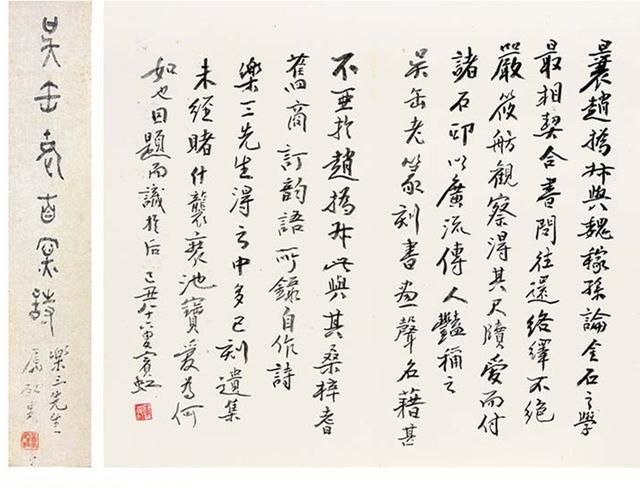 吳缶老自寫詩
樂三先生
屬
曩趙撝叔與魏稼孫論金石之學
最相契合書問往還絡繹不絕
嚴筱舫觀察得其尺牘愛而付
諸石印以廣流傳人豔稱之
吳缶老篆刻書畫聲名藉甚
不亞於趙撝叔此與其桑梓耆
舊商訂韵語所錄自作詩
樂三先生得之中多已刻遺集
未經睹什襲裝池寶愛為何
如也因題而識於后 己丑八十六叟賓虹